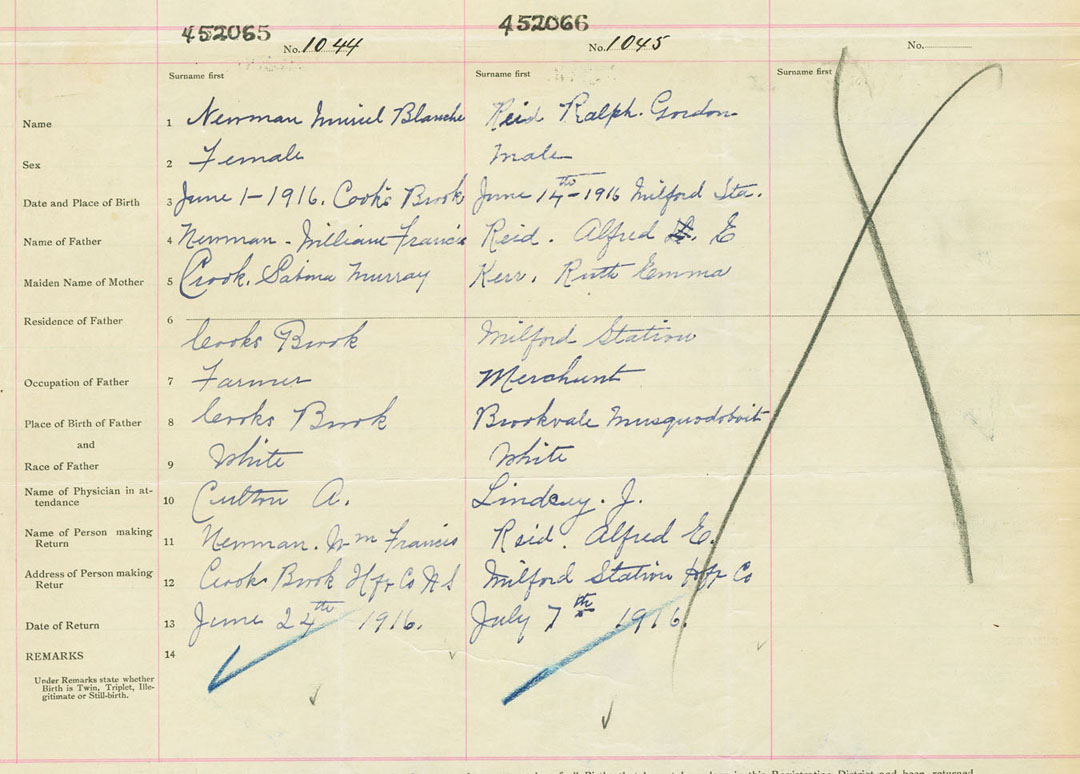 452065 452066
No. 1044 No. 1045 No.
Surname first Surname first Surname first
Name 1 Newman Muriel Blanche Reid Ralph. Gordon
Sex 2 Female Male
Date and Place of Birth 3 June 1-1916. Cooks Brook June 14th-1916 Milford Sta.
Name of Father 4 Newman - William Francis Reid. Alfred E
Maiden Name of Mother 5 Crook. Murray Kerr. Ruth Emma
Residence of Father 6
Cooks Brook Milford Station
Occupation of Father 7 Farmer Merchant
Place of Birth of Father 8 Cooks Brook Brookvale Musquodoboit
and
Race of Father 9 White White
Name of Physician in at-
tendance 10 A. Lindsey. J.
Name of Person making
Return 11 Newman. Wm Francis Reid. Alfred E.
Address of Person making
Retur 12 Cooks Brook Hfx Co N S Milford Station Hfx Co
Date of Return 13 June 24th 1916. July 7th 1916.
REMARKS 14
Under Remarks state whether
Birth is Twin, Triplet, Ille-
gitimate or Still-birth.